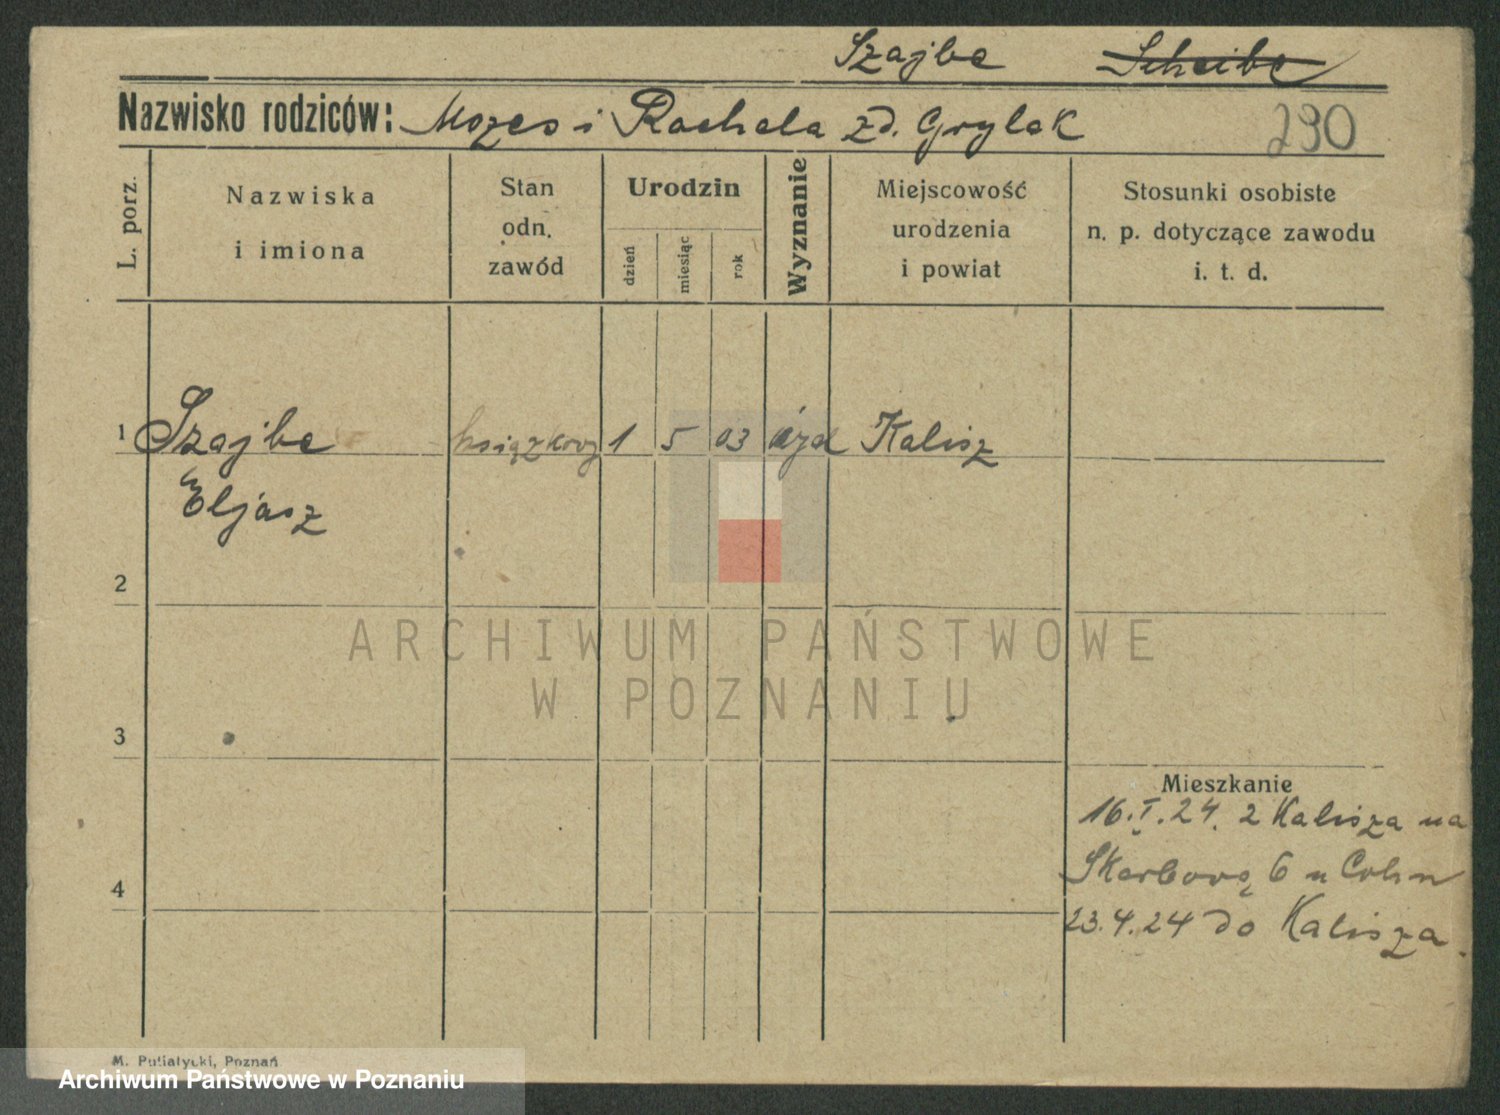 Szajbe Scheibe
Nazwisko rodziców: Mozes i Rachela zd. Grylak
290
L. porz.
Nazwiska
i imiona
Stan
odn.
zawód
Urodzin
dzień
miesiąc
rok
Wyznanie
Miejscowość
urodzenia
i powiat
Stosunki osobiste
n. p. dotyczące zawodu
i. t. d.
1 Szajbe książkowy 1 5 03 żyd Kalisz
Eljasz
2
3
4
Mieszkanie
16.I.24. z Kalisza na
Skarbową 6 u Cohn
23.4.24 do Kalisza.
ARCHIWUM PAŃSTWOWE
W POZNANIU
M. Putiatycki, Poznań
Archiwum Państwowe w Poznaniu